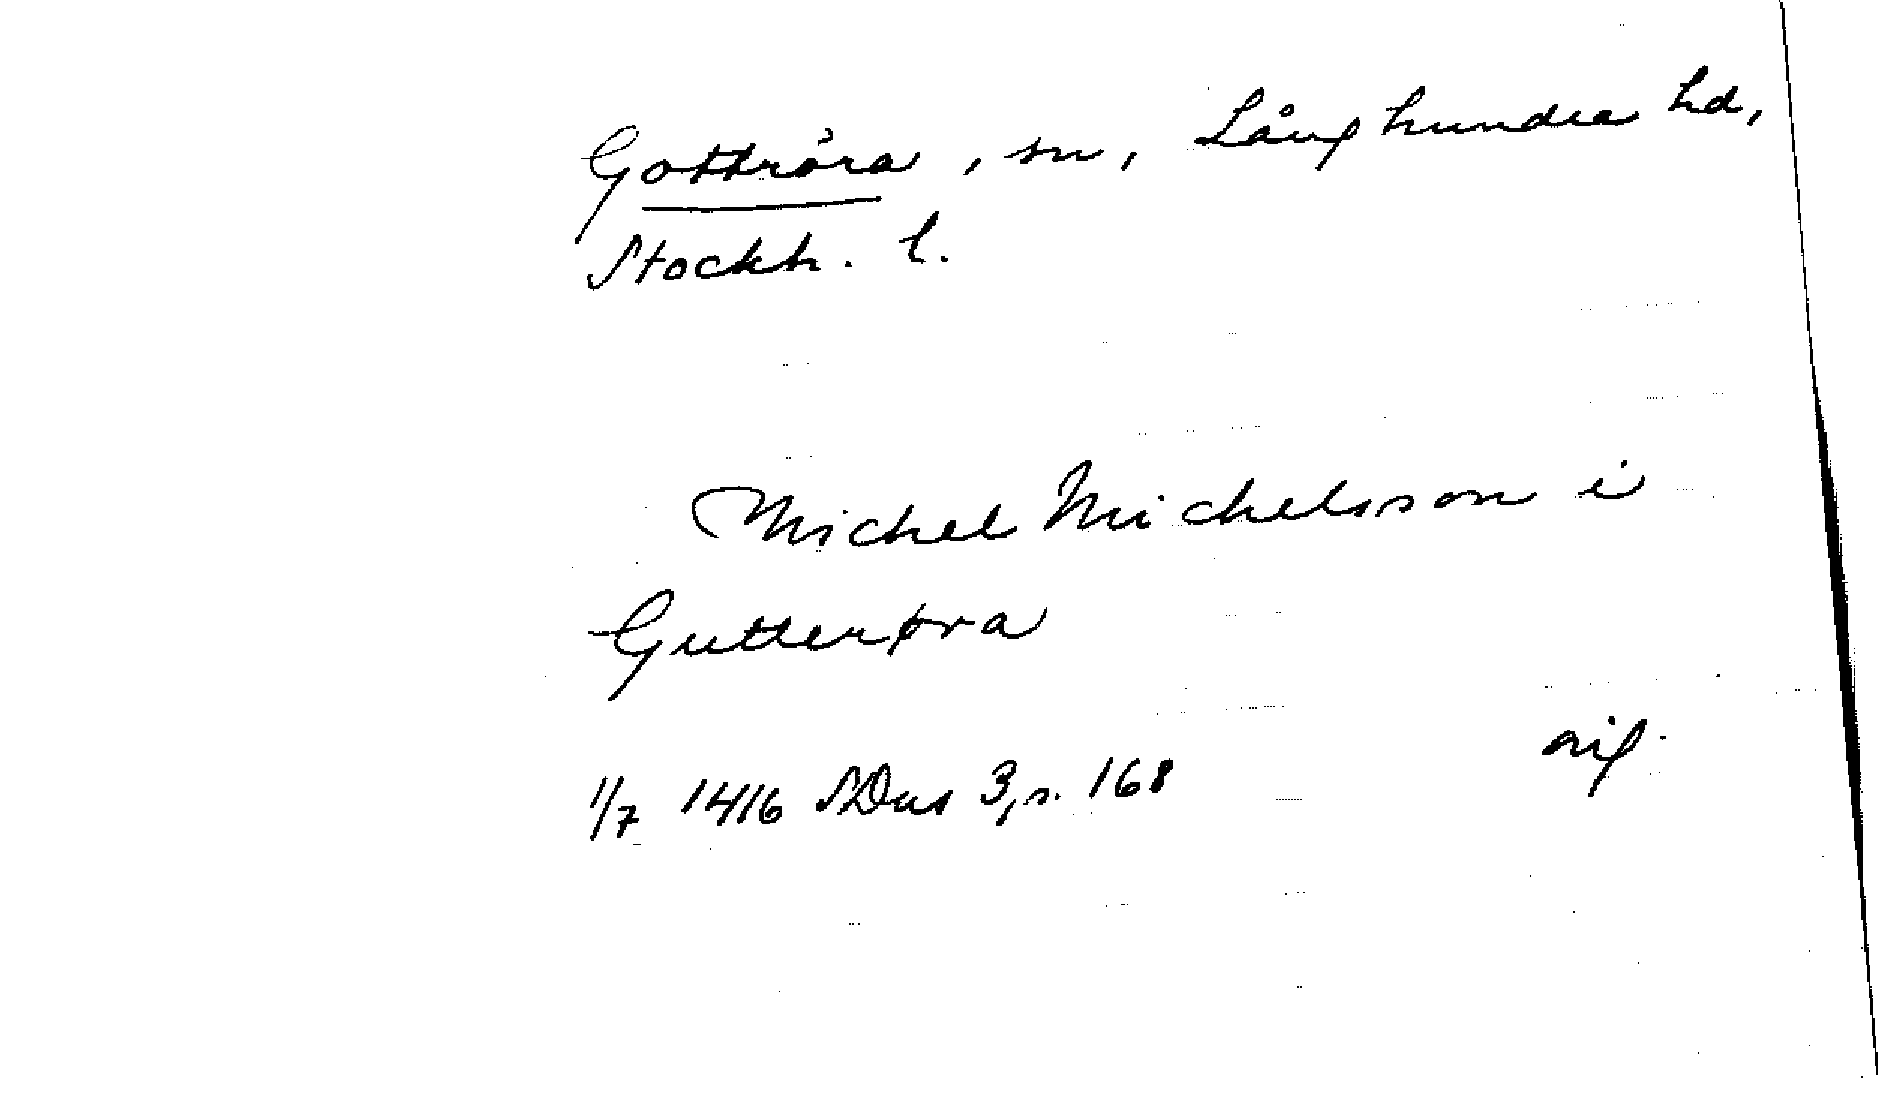 Gottröra, sn, Långhundra hd,
Stockh. l.
Michel Michelsson i
Gutterøra
1/7 1416 SDns 3, s. 168
orig.